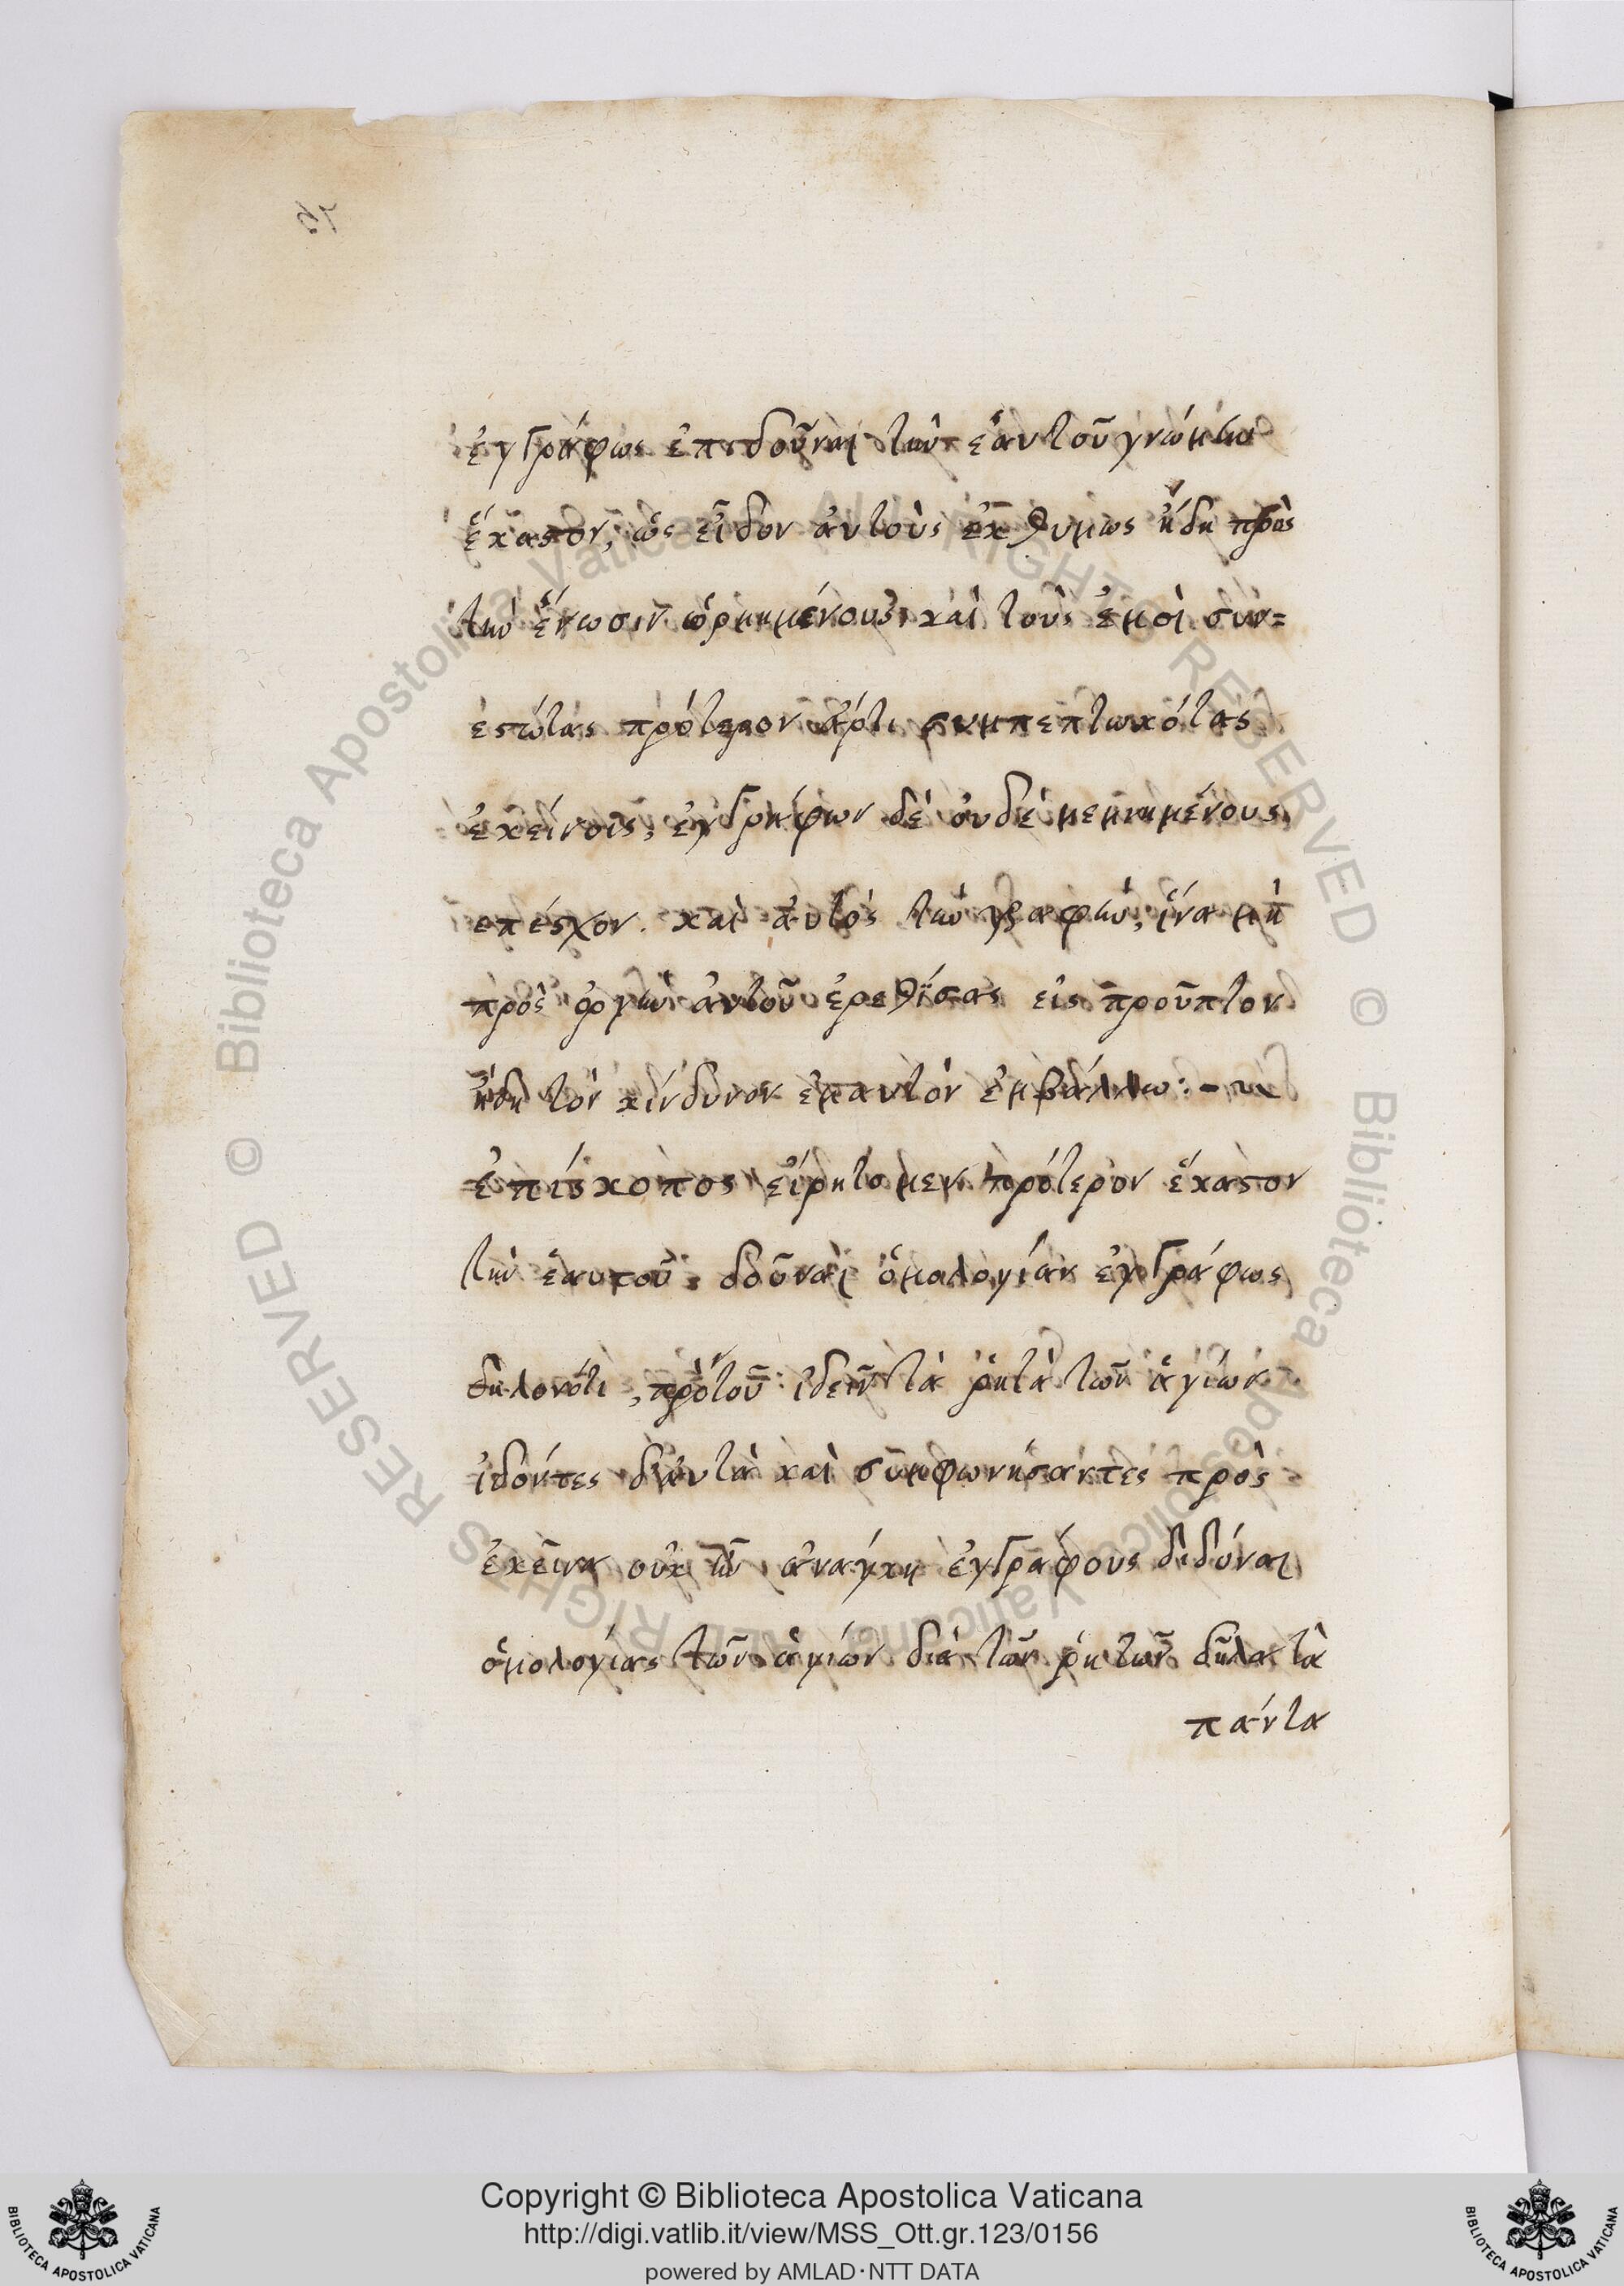 ἐγγράφως ἐπιδοῦναι τὴν ἑαυτοῦ γνώμην
ἕκαστον, ὡς εἶδον ἀυτοὺς ἐκθυμως ἤδη πρὸς
τὴν ἕνωσιν ὡρμημένους καὶ τοὺς ἐμοὶ συν=
εστώτας πρότερον ἄρτι συμπεπτωκότας
ἐκείνοις, ἐγγράφων δὲ ὀυδὲ μεμνημένους,
επέσχον. καὶ ἀυτὸς τὴν γραφὴν, ἵνα μὴ
πρὸς ὀργὴν ἀυτοῦ ἐρεθίσας εἰς προῦπτον
ἤδη τὸν κίνδυνον ἐμαυτὸν ἐμβάλλω:-
ἐπίσκοπος εἴρητο μεν πρότερον ἕκαστον
τὴν ἑαυτοῦ δοῦναι ὁμολογίαν ἐγγράφως
δηλονότι, πρὸτοῦ ἰδεῖν τὰ ῥητὰ τῶν ἁγίων
ἰδόντες δ'ἀυτὰ καὶ συμφωνήσαντες πρὸς
ἐκεῖνα οὐκ ἦν ἀναγκη ἐγγράφους διδόναι
ὁμολογίας τῶν ἁγίων διὰ τῶν ῥητῶν δῆλα τὰ
πάντα
Copyright © Biblioteca Apostolica Vaticana
http://digi.vatlib.it/view/MSS_Ott.gr.123/0156
powered by AMLAD·NTT DATA
BIBLIOTECA APOSTOLICA VATICANA
BIBLIOTECA APOSTOLICA VATICANA
© Biblioteca Apostolica Vaticana ALL RIGHTS RESERVED
© Biblioteca Apostolica Vaticana ALL RIGHTS RESERVED